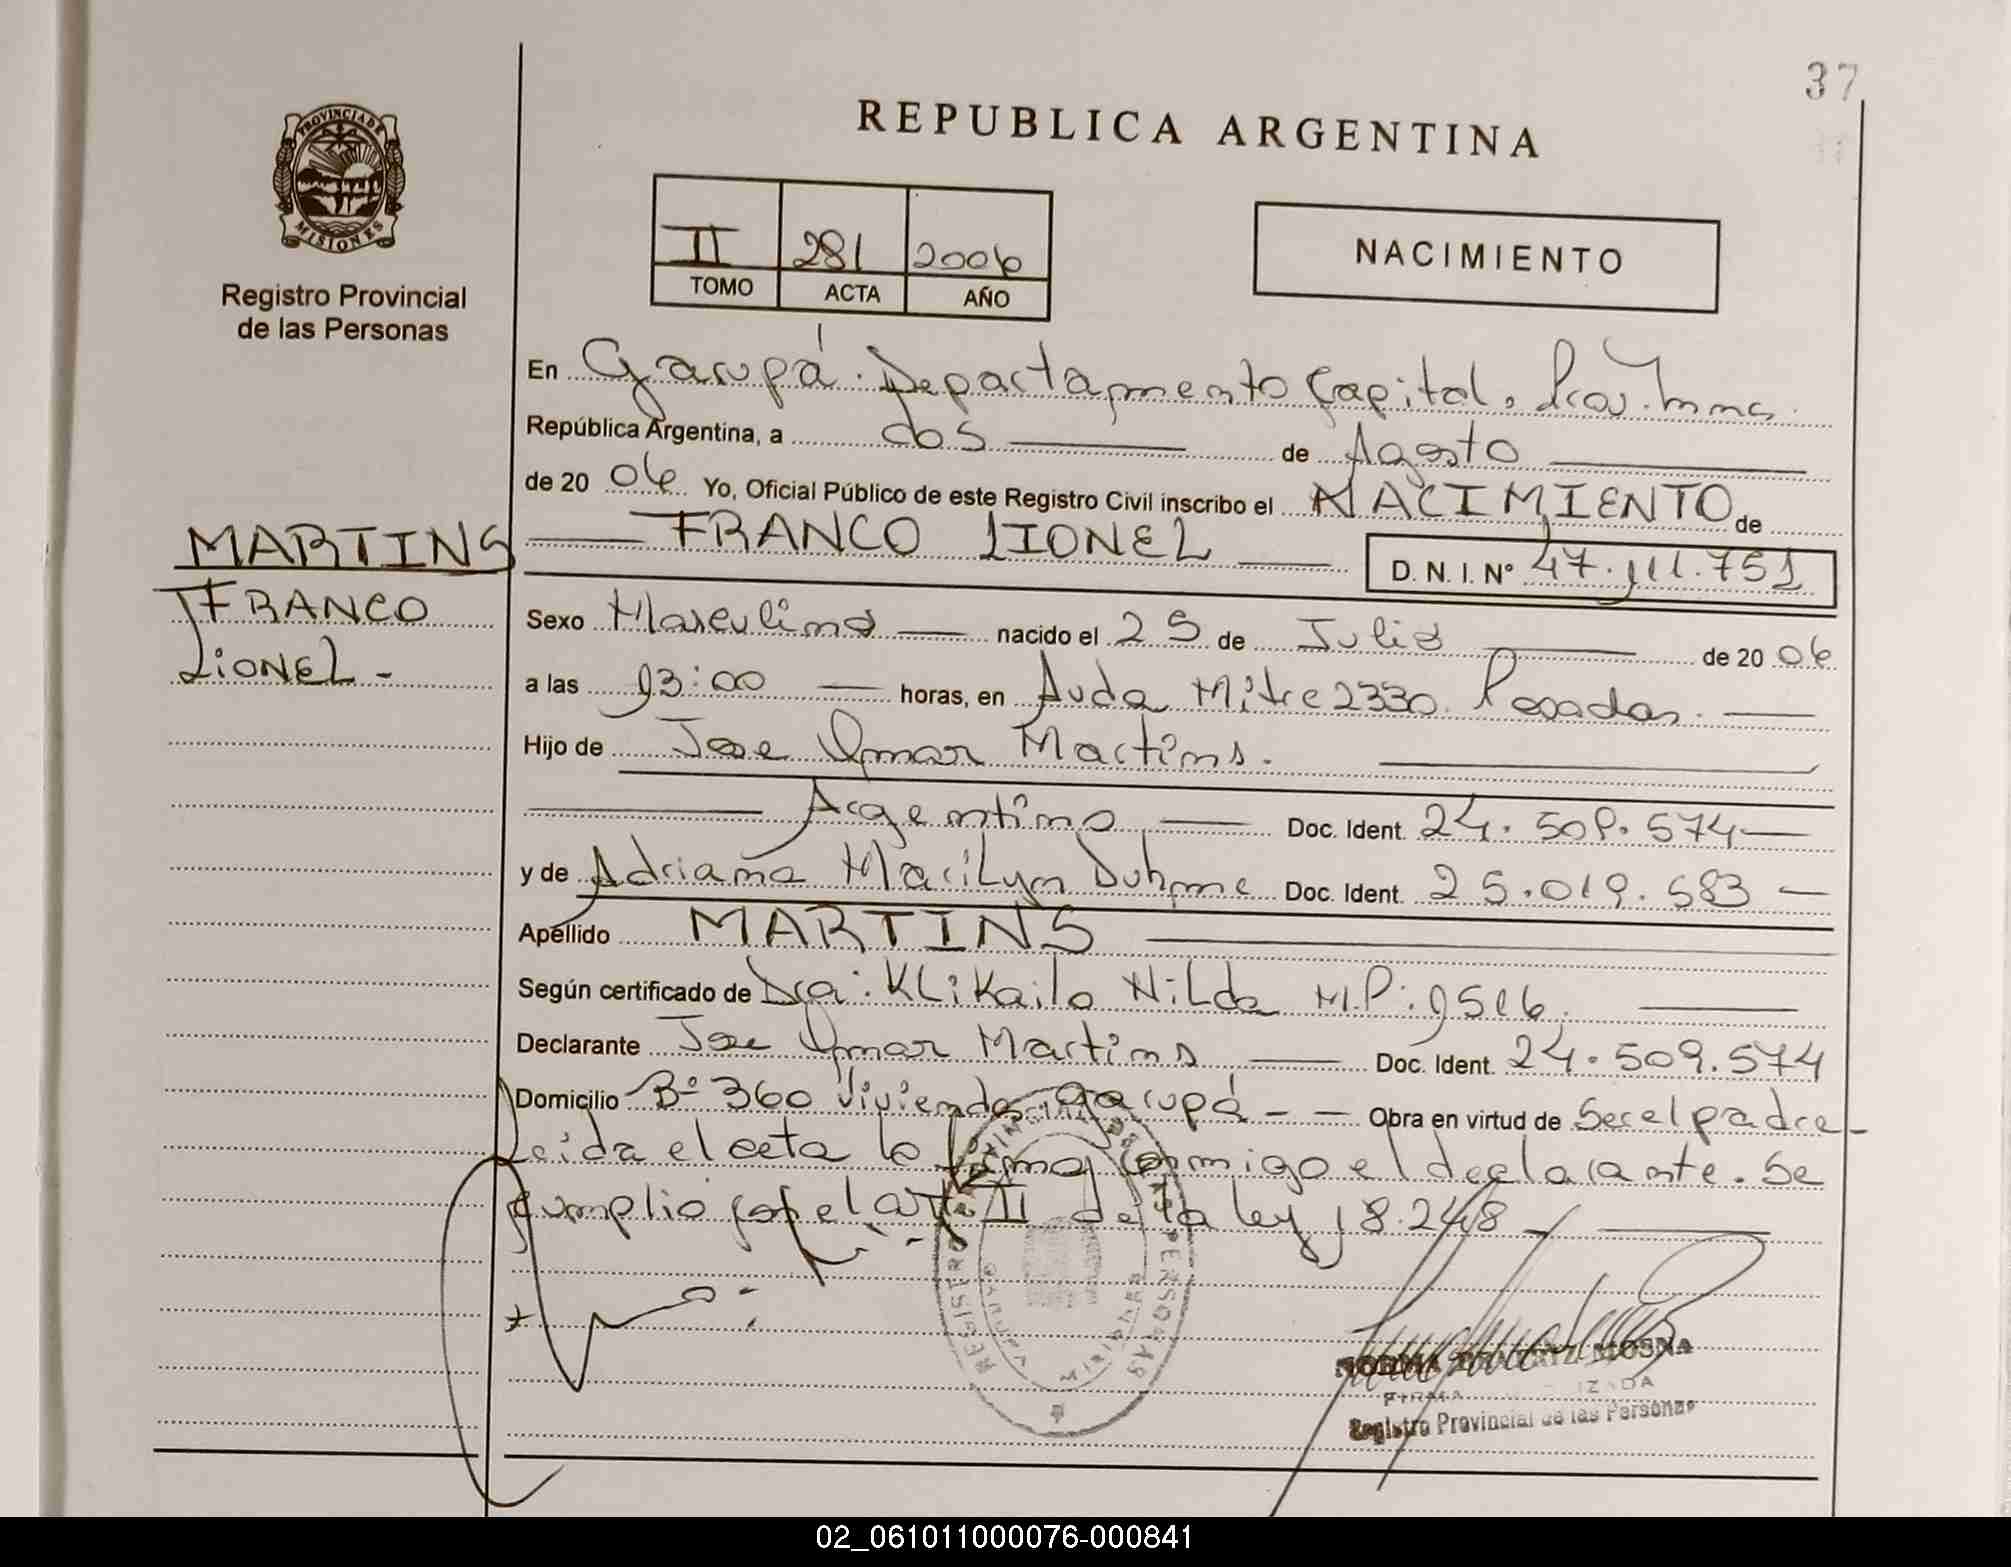 37
REPUBLICA ARGENTINA
PROVINCIA DE
MISIONES
Registro Provincial
de las Personas
II 281 2006
TOMO ACTA AÑO
NACIMIENTO
En Garupá. Departamento Capital, Prov. Mnes.
República Argentina, a dos de Agosto
de 20 06 Yo, Oficial Público de este Registro Civil inscribo el NACIMIENTO de
FRANCO LIONEL D. N. I. N° 47.111.751
MARTINS
FRANCO
LIONEL -
Sexo Masculino nacido el 25 de Julio de 20 06
a las 03:00 horas, en Avda Mitre 2330. Posadas.
Hijo de Jose Omar Martins.
Argentino Doc. Ident. 24.509.574
y de Adriana Marilyn Duhme Doc. Ident. 25.019.583
Apellido MARTINS
Según certificado de Dra: Klikailo Nilda M.P:
Declarante Jose Omar Martins Doc. Ident. 24.509.574
Domicilio B° 360 Viviendas Garupá - - Obra en virtud de Ser el padre -
Leida el acta la firma conmigo el declarante. Se
cumplio con el art II de la ley 18.248
REGISTRO PROVINCIAL DE LAS PERSONAS
GARUPA
NORMA BEATRIZ MOSNA
FIRMA
Registro Provincial de las Personas
02_061011000076-000841